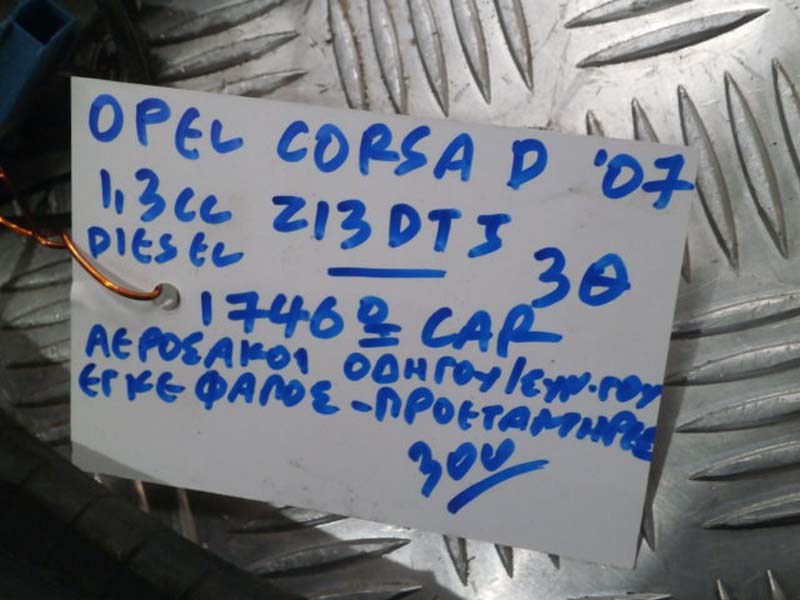 OPEL CORSA D '07
1,3cc Z13DTJ
DIESEL 3Θ
1746º CAR
ΑΕΡΟΣΑΚΟΙ ΟΔΗΓΟΥ/ΣΥΝ.ΓΟΥ
ΕΓΚΕΦΑΛΟΣ-ΠΡΟΕΤΑΤΗΡΕΣ
300